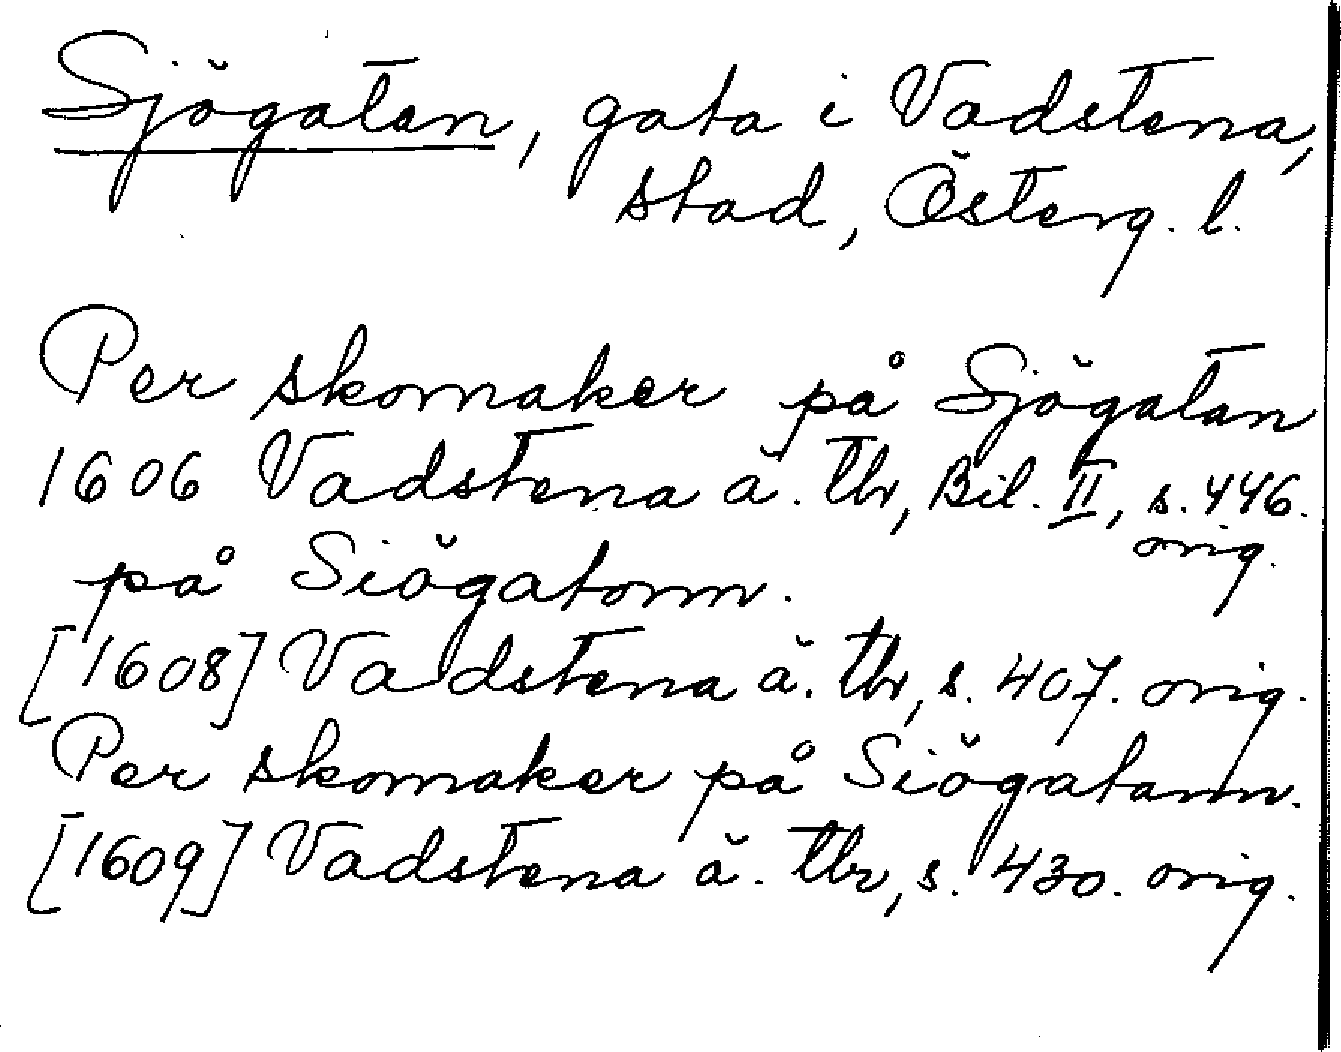 Sjögatan, gata i Vadstena,
stad, Österg. l.
Per skomaker på Sjögatan
1606 Vadstena ä. tbr, Bil. II, s. 446.
orig.
på Siögatonn.
[1608] Vadstena ä. tbr, s. 407. orig.
Per skomaker på Siögatann.
[1609] Vadstena ä. tbr, s. 430. orig.